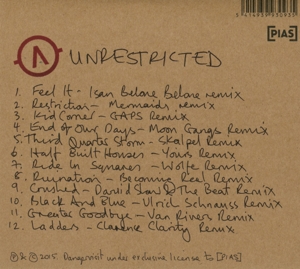 5 414939 930935
[PIAS]
UNRESTRICTED
1. Feel It - Isan Belone Belone remix
2. Restriction - Mermaids remix
3. Kid Corner - GAPS Remix
4. End Of Our Days - Moon Gangs Remix
5. Third Quarter Storm - Skalpel Remix
6. Half Built Houses - Yours Remix
7. Ride In Squares - Wolfe Remix
8. Ruination - Becoming Real Remix
9. Crushed - David Starr & The Beat Remix
10. Black And Blue - Ulrich Schnauss Remix
11. Greater Goodbye - Van Rivers Remix
12. Ladder - Clarence Clarity Remix
℗ & © 2015 Dangerpoint under exclusive license to [PIAS]